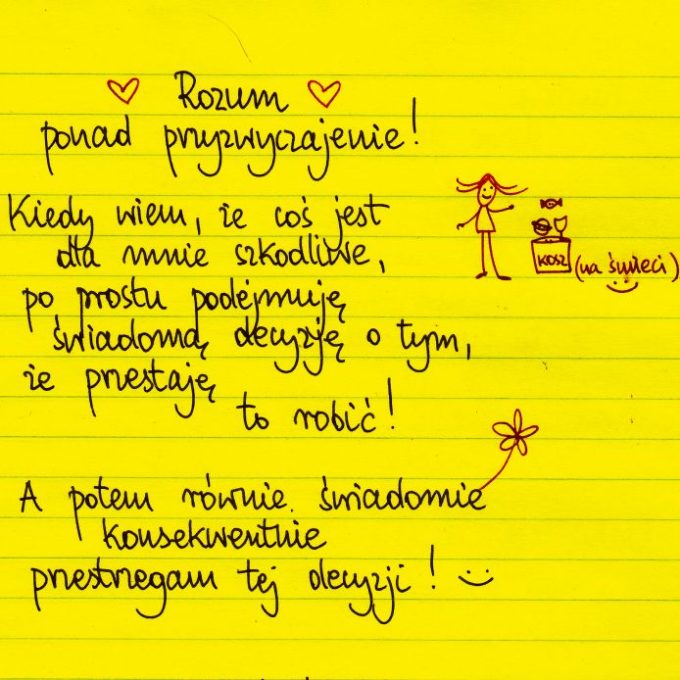 Rozum
ponad przyzwyczajenie!
Kiedy wiem, że coś jest
dla mnie szkodliwe,
po prostu podejmuję
świadomą decyzję o tym,
że przestaję
to robić!
A potem równie świadomie
konsekwentnie
przestrzegam tej decyzji!
KOSZ
(na śmieci)